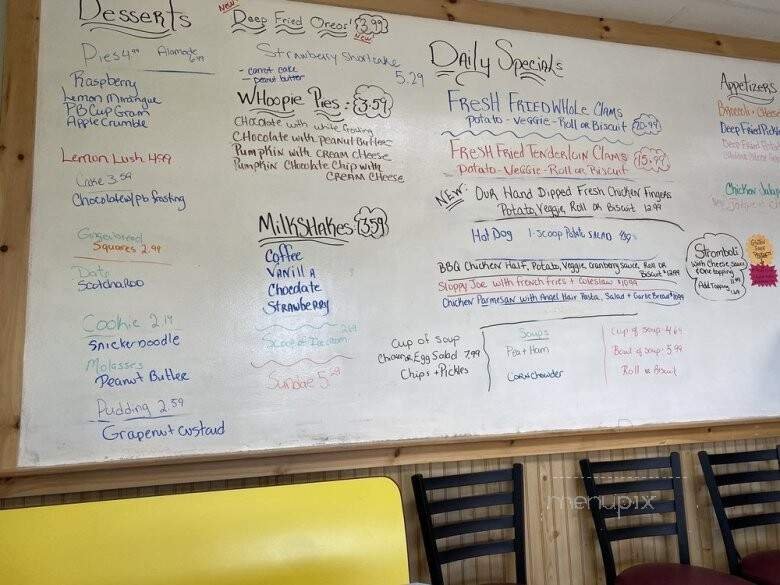 Desserts
Pies 4.99 Alamode
Raspberry
Lemon Mirangue
PB Cup Gram
Apple Crumble
Lemon Lush 4.99
Cake 3.59
Chocolate w/ pb frosting
Gingerbread
Squares 2.99
Date
Scotcharoo
Cookie 2.19
Snickerdoodle
Molasses
Peanut Butter
Pudding 2.59
Grapenut custard
NEW:
Deep Fried Oreos 3.99
New
Strawberry Shortcake
- carrot cake
- peanut butter
5.29
Whoopie Pies: 3.59
Chocolate with white frosting
Chocolate with Peanut Butter
Pumpkin with cream cheese
Pumpkin Chocolate Chip with
cream cheese
Milkshakes 3.59
Coffee
Vanilla
Chocolate
Strawberry
Scoop of Ice Cream 2.69
Sundae 5.29
Daily Specials
Fresh Fried Whole Clams
Potato - Veggie - Roll or Biscuit 20.99
Fresh Fried Tenderloin Clams
Potato - Veggie - Roll or Biscuit 15.99
NEW:
Our Hand Dipped Fresh Chicken Fingers
Potato, Veggie, Roll or Biscuit 12.99
Hot Dog 1-scoop Potato Salad
BBQ Chicken Half, Potato, Veggie, cranberry sauce, Roll or
Biscuit $12.99
Sloppy Joe with french fries + coleslaw $10.99
Chicken Parmesan with Angel Hair Pasta, Salad + Garlic Bread $10.99
Cup of Soup
Egg Salad 7.99
Chips + Pickles
Soups
Pea + Ham
Corn Chowder
Cup of soup 4.69
Bowl of soup 5.99
Roll or Biscuit
Appetizers
Broccoli + Cheese
Deep Fried Pickle
Deep Fried
Chicken Jalap
Stromboli
with Cheese, Sauce
+ One topping
11.99
Add Topping
menupix